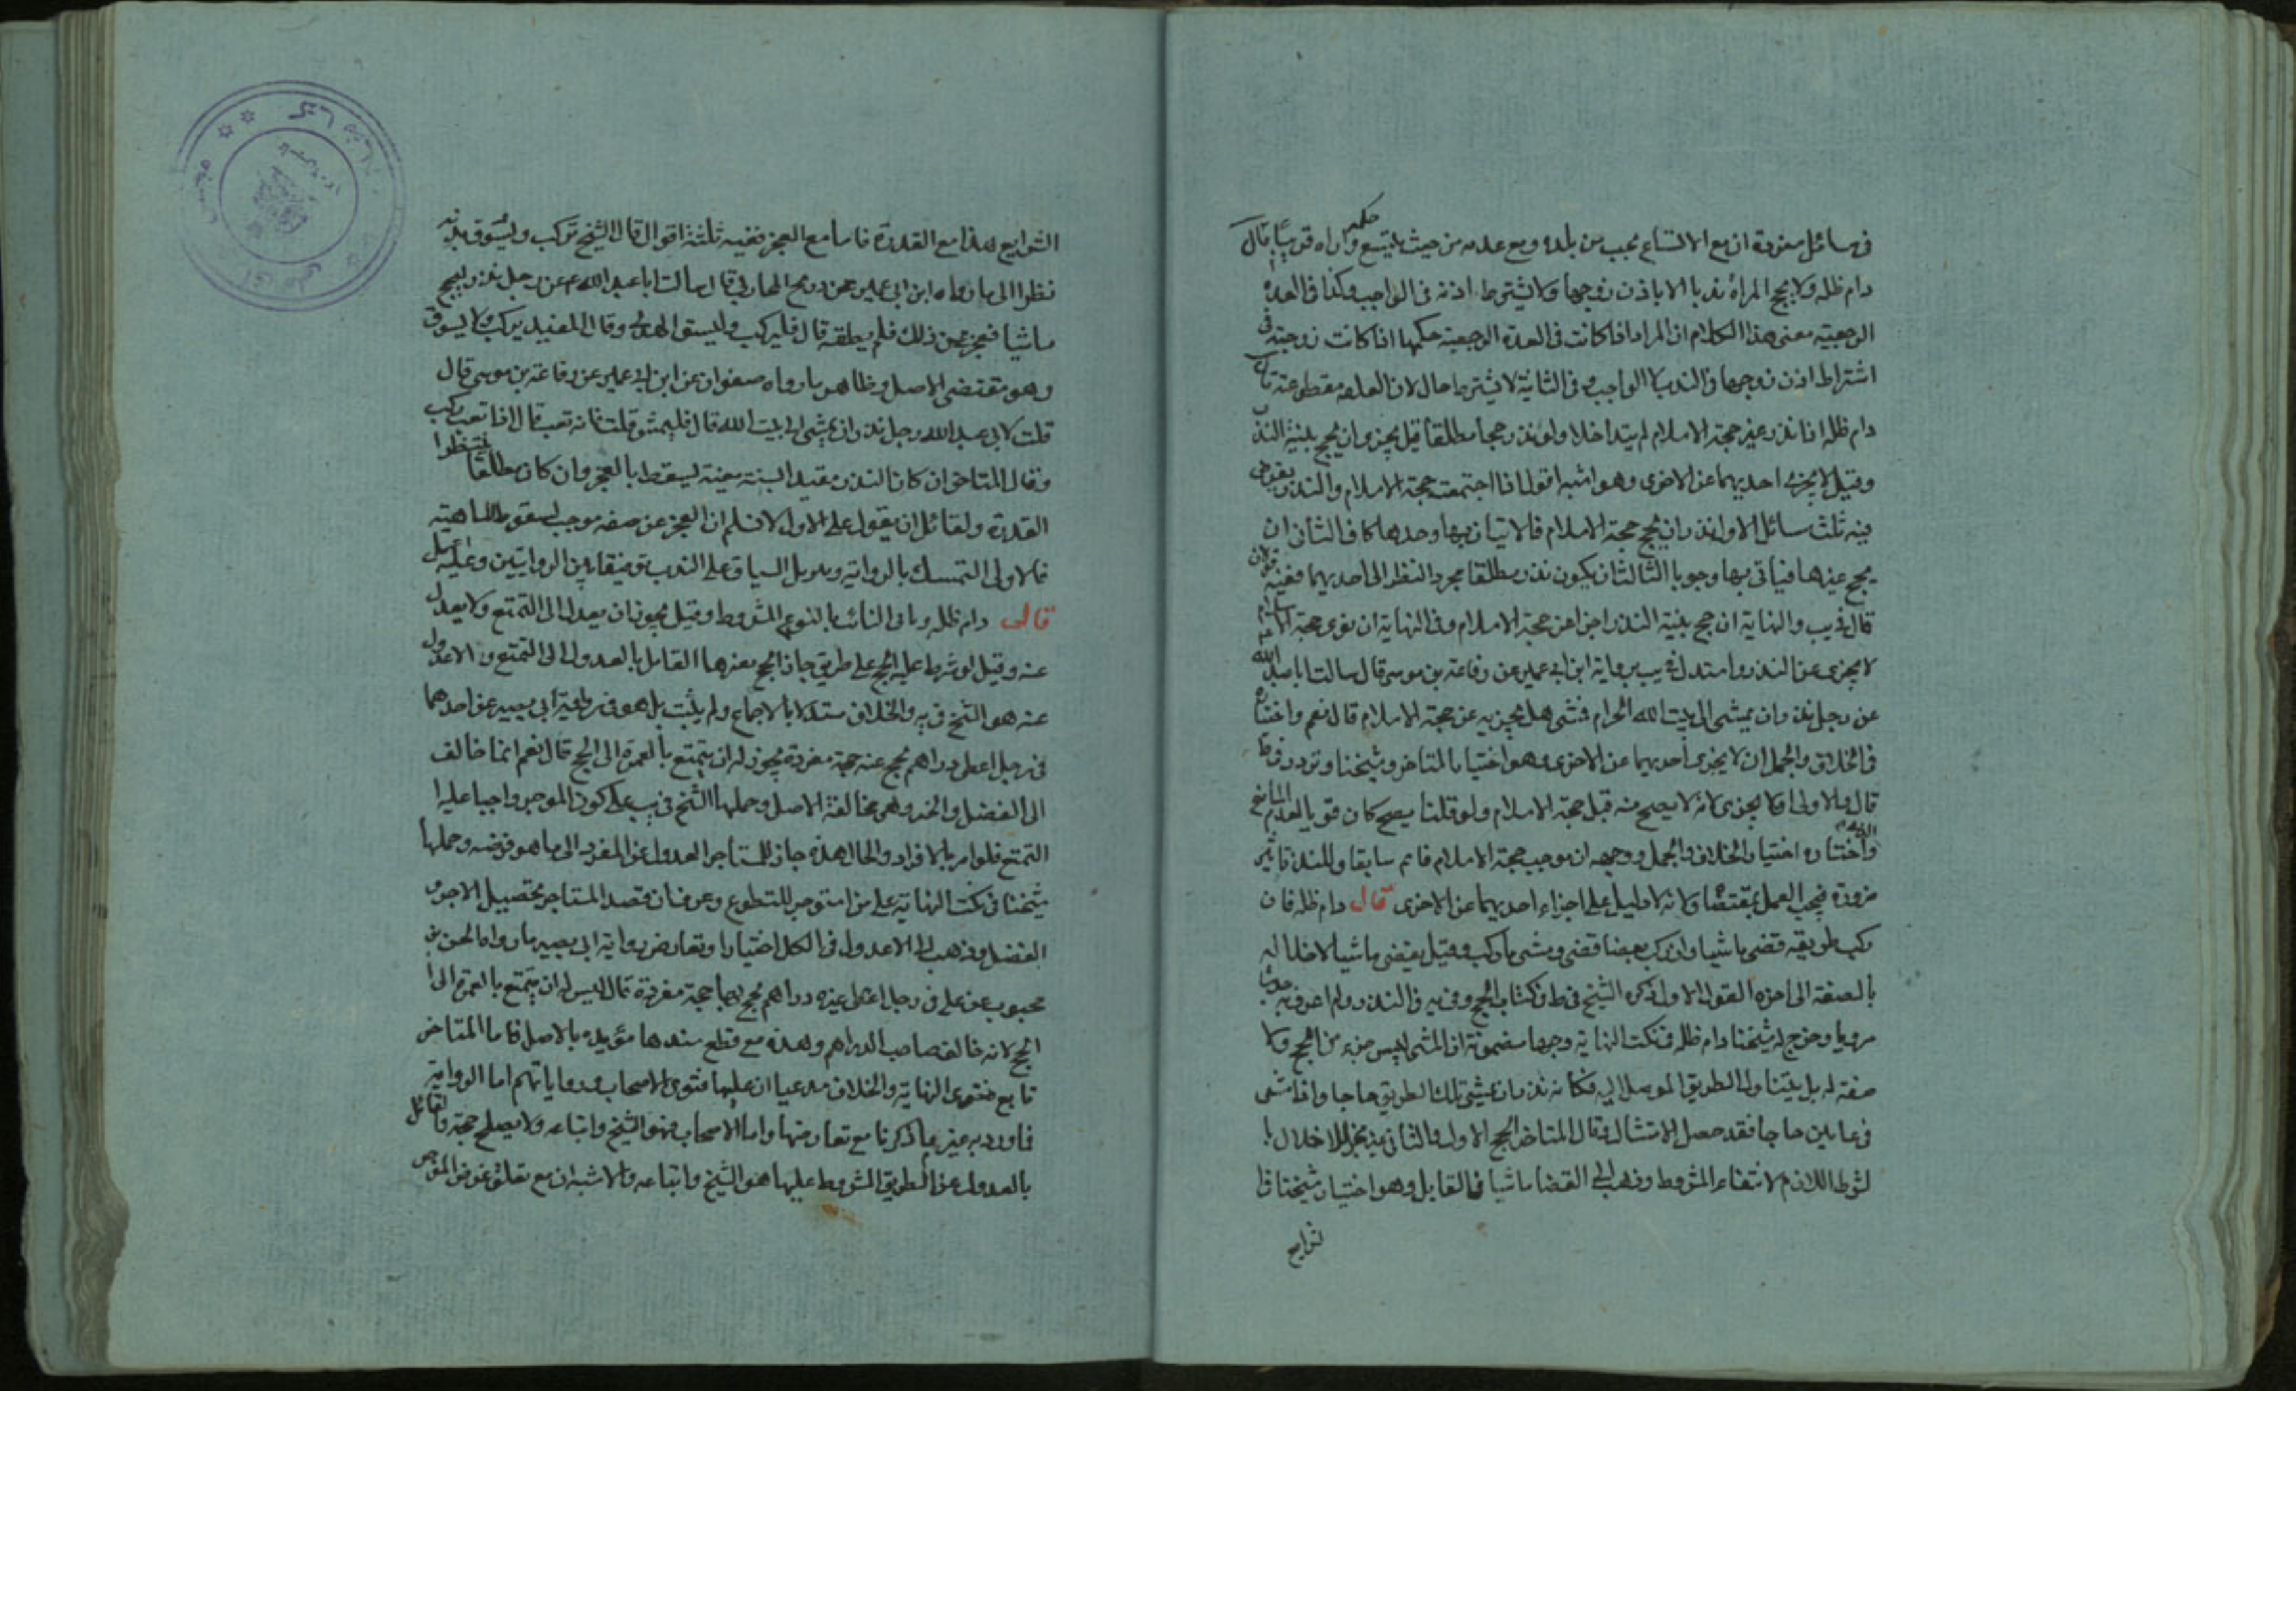 في مسائل مفردة ان مع الاتساع يجب من بلده ومع عدمه من حيث يتسع واراه قويا قال
دام ظله ولا يحج المراة ندبا الا باذن زوجها ولا يشترط اذنه في الواجب وكذا في العدة
الرجعية معنى هذا الكلام ان المراة اذا كانت في العدة الرجعية حكمها اذا كانت زوجته في
اشتراط اذن زوجها في الندب لا الواجب وفي الثانية لا يشترط حال لان العلقة مقطوعة قال
دام ظله اذا نذر غير حجة الاسلام لم يتداخلا ولو نذر حجا مطلقا قيل يجزى ان يحج بنية النذر
وقيل لا يجزى احديهما عن الاخرى وهو اشبه اقول اذا اجتمعت حجة الاسلام والنذر
فيه ثلث مسائل الاول نذر ان يحج حجة الاسلام فالاتيان بها وحدها كاف الثاني ان
يحج غيرها فياتى بها وجوبا الثالث ان يكون نذر مطلقا مجرد النظر الى احديهما ففيه قولان
قال في يب والنهاية ان حج بنية النذر اجزا عن حجة الاسلام وفي النهاية ان نوى حجة الاسلام
لا يجزى عن النذر واستدل في يب برواية ابن ابي عمير عن رفاعة بن موسى قال سالت ابا عبد الله
عن رجل نذر ان يمشى الى بيت الله الحرام فمشى هل يجزيه عن حجة الاسلام قال نعم واختار
في الخلاف والجمل ان لا يجزى احديهما عن الاخرى وهو اختيار المتاخر وشيخنا وتردد في ط
قال والاولى ان لا يجزى لانه لا يصح منه قبل حجة الاسلام ولو قلنا يصح كان قويا لعدم المانع
واختاره اختيار الخلاف والجمل ووجهه ان موجب حجة الاسلام قائم سابقا وللنذر تاثير
ضرورة فيجب العمل بمقتضاه ولانه لا دليل على اجزاء احديهما عن الاخرى قال دام ظله فان
ركب طريقه قضى ماشيا وان ركب بعضا قضى ومشى ما ركب وقيل يقضى ماشيا لاخلاله
بالصفة الى اخره القول الاول ذكره الشيخ في ط في كتاب الحج وفي يه في النذر ولم اعرف به حديثا
مرويا وخرج له شيخنا دام ظله في نكت النهاية وجها مضمونه ان المشى ليس جزء من الحج ولا
صفة له بل يتناول الطريق الموصل اليه فكانه نذر ان يمشي تلك الطريق حاجا واذا مشى
في عامين حاجا فقد حصل الامتثال وقال المتاخر الحج الاول والثاني غير مجز للاخلال
لشرط اللازم لانتفاء المشروط وذهب الى القضا ماشيا في القابل وهو اختيار شيخنا في
لشرايع
الشرايع هذا مع القدرة فاما مع العجز ففيه ثلثة اقوال قال الشيخ تركب ويسوق بدنة
نظرا الى ما رواه ابن ابي عمير عن ذريح المحاربي قال سالت ابا عبد الله عم عن رجل نذر ليحج
ماشيا فعجز عن ذلك فلم يطقه قال فليركب وليسق الهدى وقال المفيد يركب ولا يسوق
وهو مقتضى الاصل وظاهر ما رواه صفوان عن ابن ابي عمير عن رفاعة بن موسى قال
قلت لابي عبد الله رجل نذر ان يمشى الى بيت الله قال فليمش قلت فانه تعب قال اذا تعب ركب
وقال المتاخر ان كان النذر مقيدا لسنة معينة يسقط بالعجز وان كان مطلقا ينتظر
القدرة ولقائل ان يقول على الاول لا نسلم ان العجز عن صفة موجب لسقوط الماهية
فالاولى التمسك بالرواية وينزل السياق على الندب توفيقا بين الروايتين وعليه
قال دام ظله وياتى النائب بالنوع المشروط وقيل يجوز ان يعدل الى التمتع ولا يعدل
عنه وقيل لو شرط عليه الحج على طريق جاز الحج بغيرها القائل بالعدول الى التمتع والاعدول
عنه هو الشيخ في يه والخلاف مستدلا بالاجماع ولم يثبت بل هو في رواية ابي بصير عن احدهما
في رجل اعطى دراهم يحج عنه حجة مفردة يجوز له ان يتمتع بالعمرة الى الحج قال نعم انما خالف
الى الفضل والخير وهي مخالفة الاصل وحملها الشيخ في يب على كون الموجر واجبا عليه
التمتع فلو امر بالافراد والحال هذه جاز للمستاجر العدول عن المفرد الى ما هو فرضه وحملها
شيخنا في نكت النهاية على من استوجر للتطوع وعرف ان قصد المستاجر تحصيل الاجر و
الفضل وذهب الى الاعدول في الكل اختيارا وتعارض رواية ابي بصير ما رواه الحسن بن
محبوب عن على في رجل اعطى غيره دراهم يحج بها حجة مفردة قال ليس له ان يتمتع بالعمرة الى
الحج لانه خالف صاحب الدراهم وهذه مع قطع سندها مؤيده بالاصل فاما المتاخر
تابع فتوى النهاية والخلاف مدعيا ان عليها فتوى الاصحاب ورواياتهم اما الرواية
فما ورد به غير ما ذكرنا مع تعارضها واما الاصحاب فهو الشيخ واتباعه ولا يصلح حجة والقائل
بالعدول عن الطريق المشروط عليها هو الشيخ واتباعه والاشبه ان مع تعلق غرض